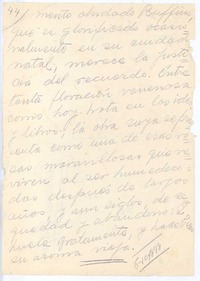 44/ mento olvidado Buffin,
que si glorificado ocasio
nalmente en su ciudad
natal, merece la justi
cia del recuerdo. Entre
tanta floración venenosa
como hoy brota en las ideas
y libros, la obra suya se pre
senta como una de esas ro
sas maravillosas que re
viven al ser humedeci
das después de largos
años, y aun siglos, de se
quedad y abandono:
huele gratamente, y
su aroma